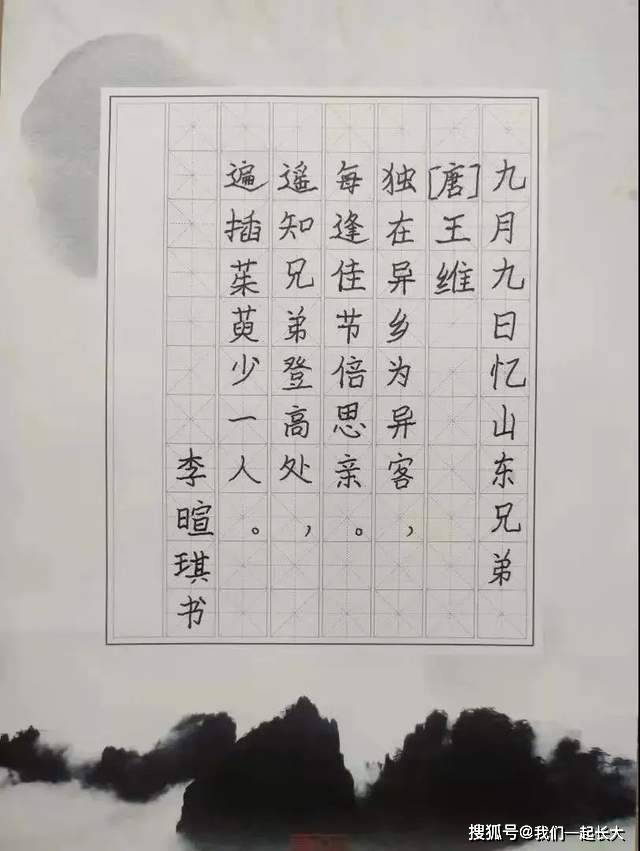 九月九日忆山东兄弟
[唐]王维
独在异乡为异客，
每逢佳节倍思亲。
遥知兄弟登高处，
遍插茱萸少一人。
李暄琪书
搜狐号@我们一起长大